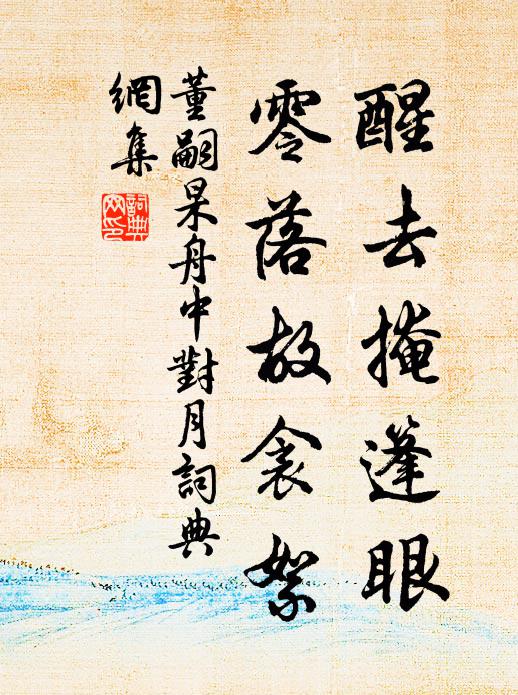 醒去掩篷眼
零落故衾絮
董嗣杲舟中對月詞典
網集
詞典網印